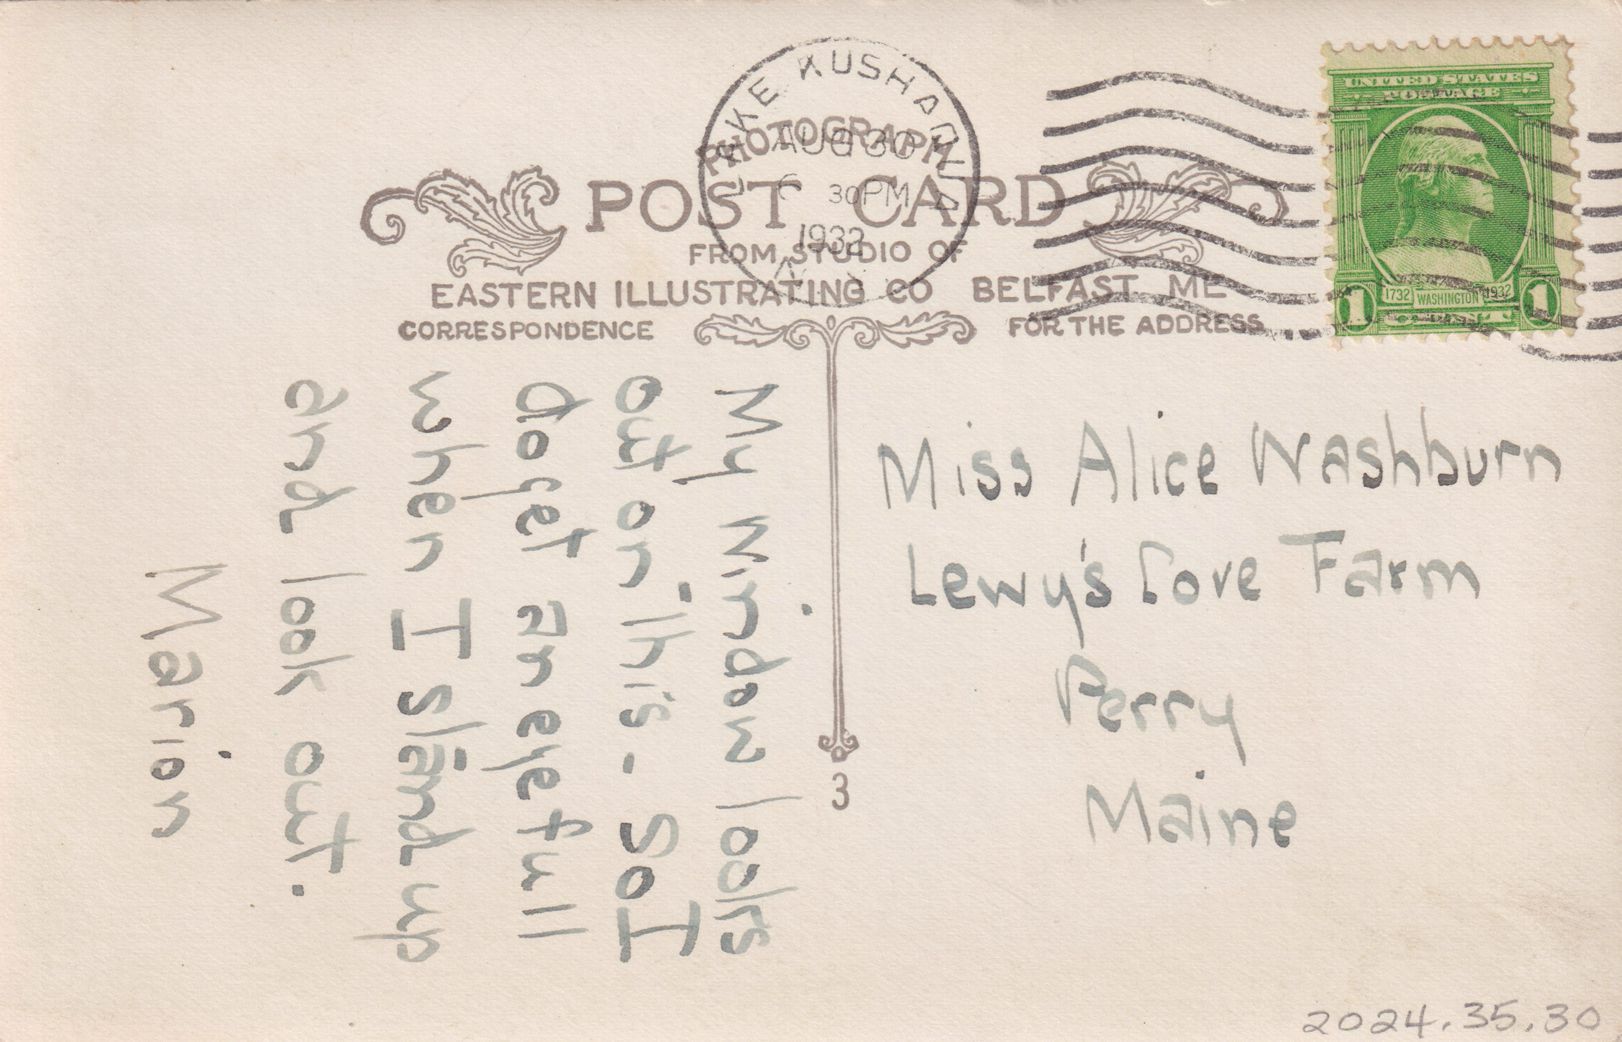 LAKE KUSHAQUA
AUG 30
30PM
1932
N Y
UNITED STATES
POSTAGE
1732 WASHINGTON 1932
1 CENT 1
PHOTOGRAPH
POST CARD
FROM STUDIO OF
EASTERN ILLUSTRATING CO BELFAST ME
CORRESPONDENCE
FOR THE ADDRESS
My window looks
out on this - So I
do get an eyefull
when I stand up
and look out.
Marion
Miss Alice Washburn
Lewy's Cove Farm
Perry
Maine
3
2024.35.30